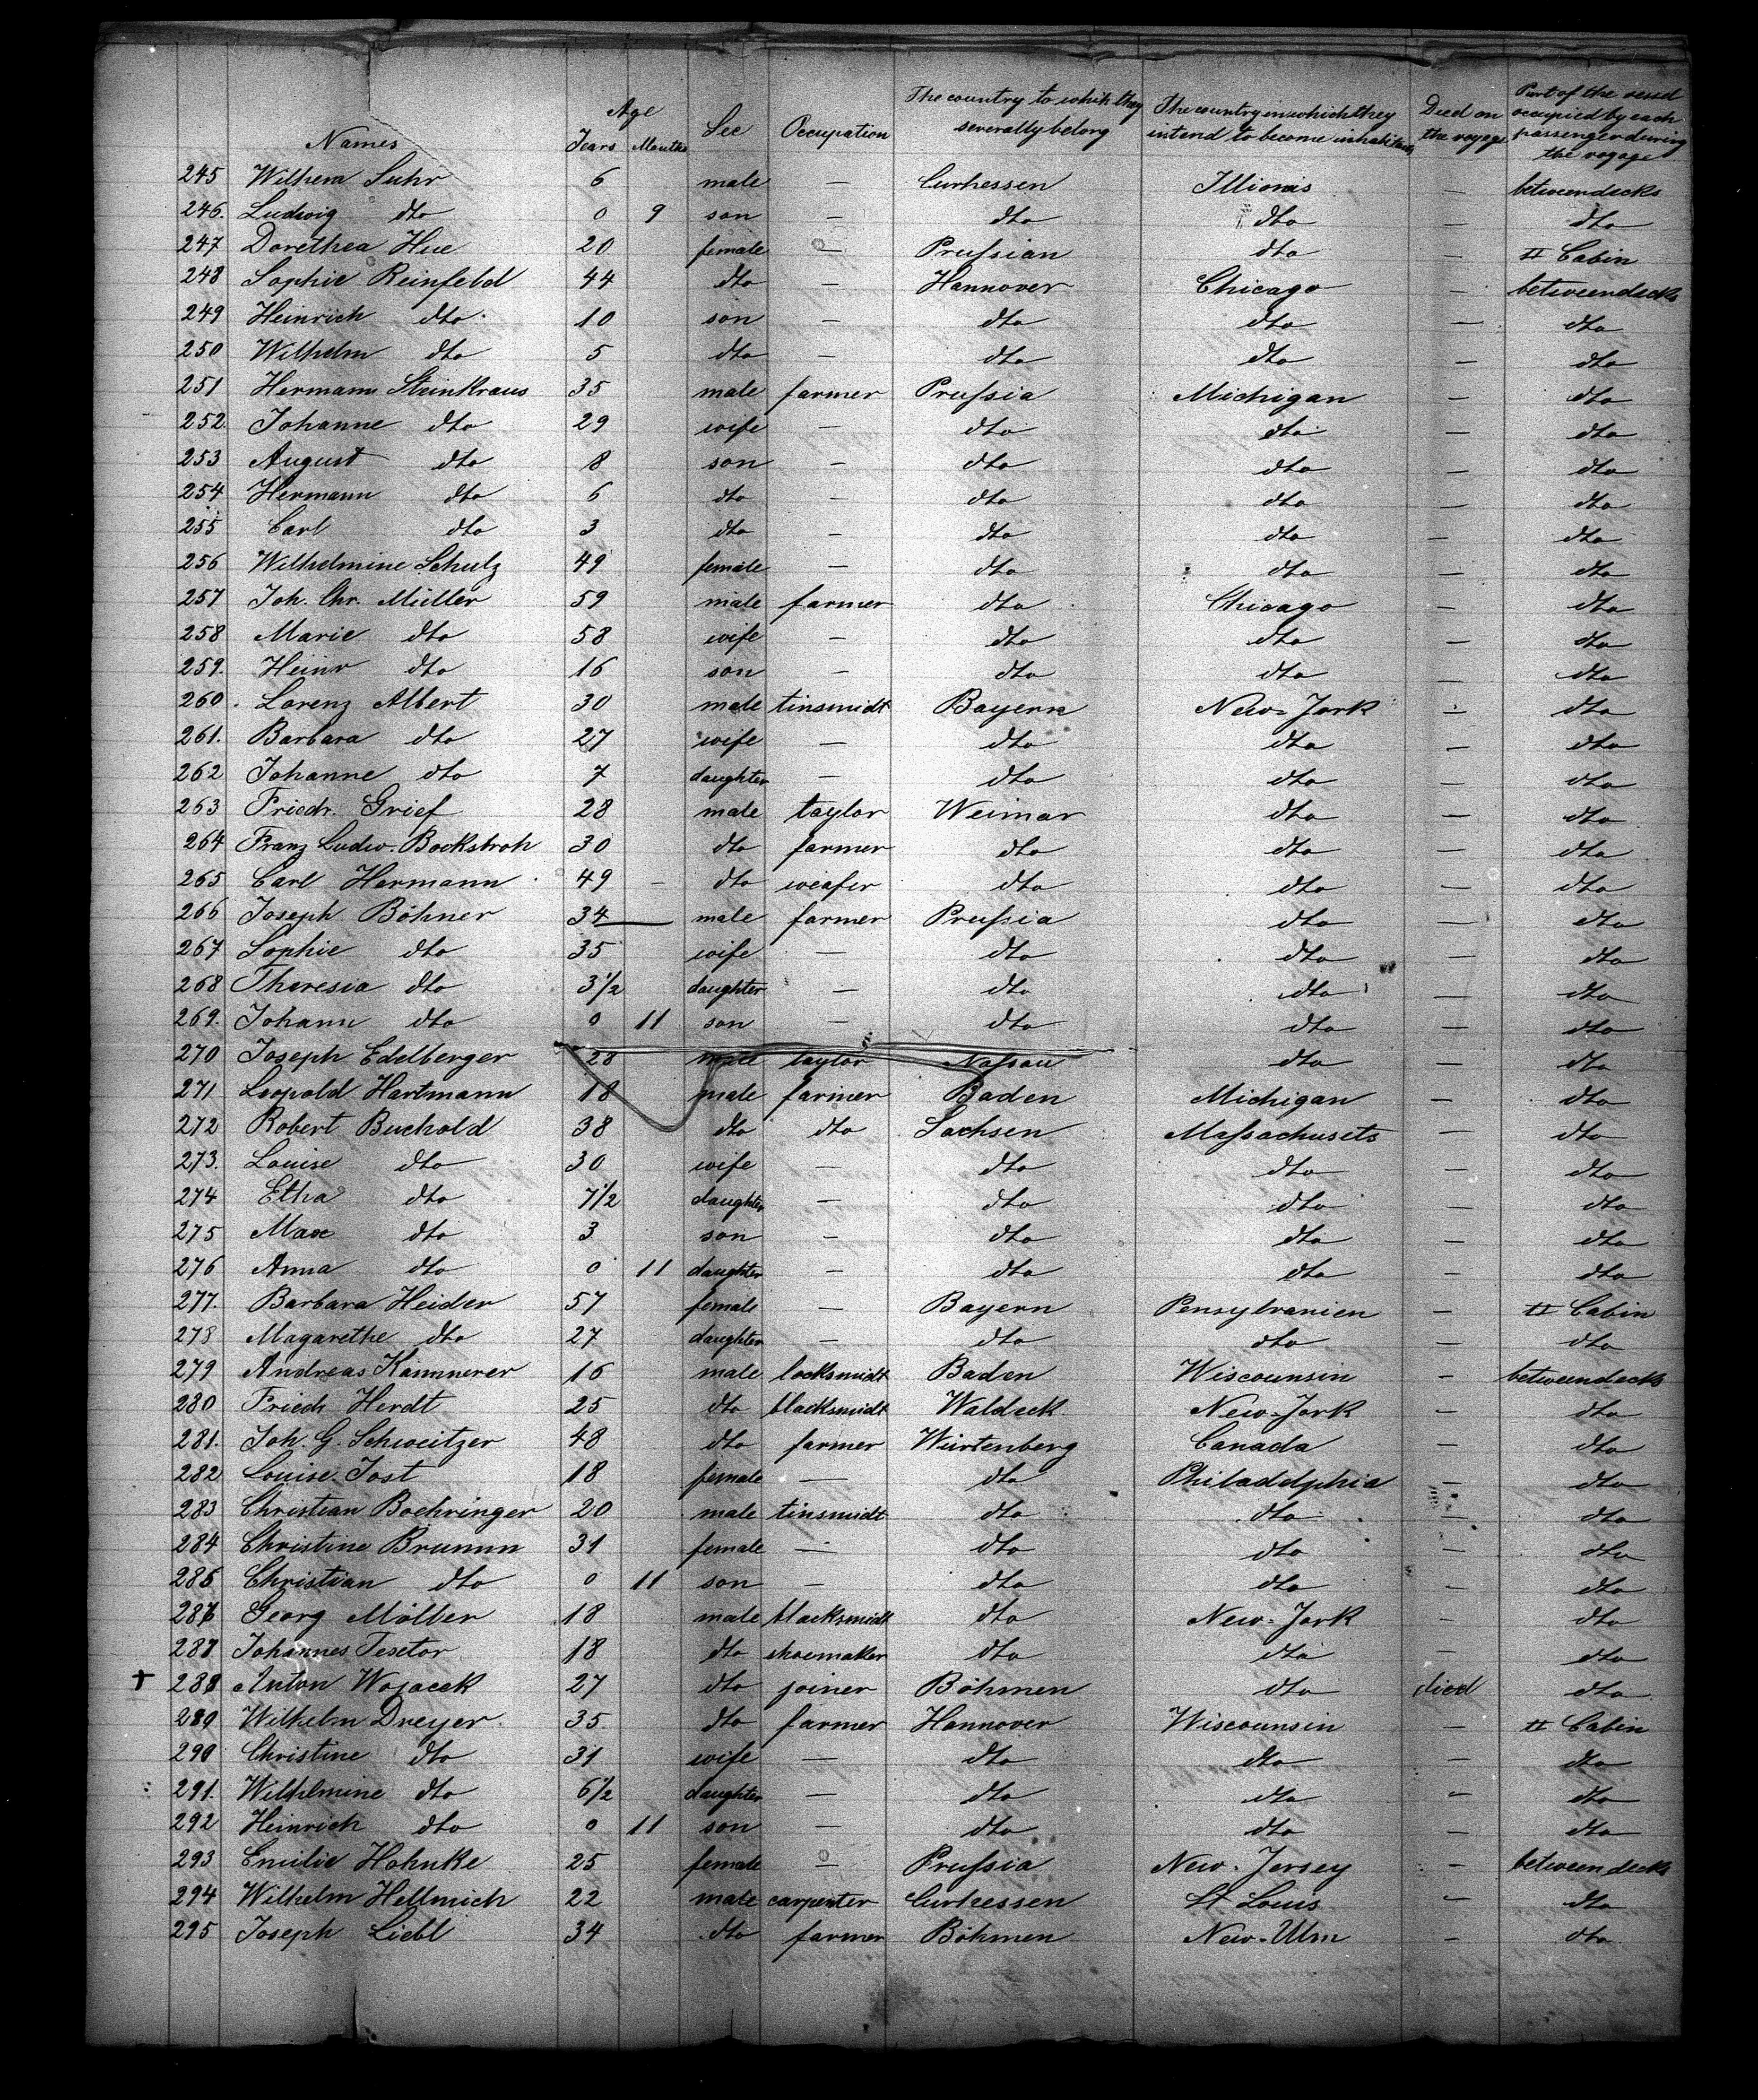 Names Age Years Months Sec Occupation The country to which they severally belong The country in which they intend to become inhabitans Died on the voyage Part of the vessel occupied by each passenger during the voyage
245 Wilhem Suhr 6 male — Curhessen Illionis — betweendecks
246. Ludwig dto 0 9 son — dto dto — dto
247 Dorethea Hue 20 female — Prussian dto — II Cabin
248 Sophie Reinfeld 44 dto — Hannover Chicago — betweendecks
249 Heinrich dto 10 son — dto dto — dto
250 Wilhelm dto 5 dto — dto dto — dto
251 Hermann Steinkraus 35 male farmer Prussia Michigan — dto
252. Johanne dto 29 wife — dto dto — dto
253 August dto 8 son — dto dto — dto
254 Hermann dto 6 dto — dto dto — dto
255 Carl dto 3 dto — dto dto — dto
256 Wilhelmine Schulz 49 female — dto dto — dto
257 Joh. Chr. Müller 59 male farmer dto Chicago — dto
258 Marie dto 58 wife — dto dto — dto
259. Heinr dto 16 son — dto dto — dto
260. Lorenz Albert 30 male tinsmidt Bayern New-York — dto
261. Barbara dto 27 wife — dto dto — dto
262 Johanne dto 7 daughter — dto dto — dto
263 Friedr. Grief 28 male taylor Weimar dto — dto
264 Franz Ludw. Bockstroh 30 dto farmer dto dto — dto
265 Carl Hermann 49 — dto weafer dto dto — dto
266 Joseph Böhner 34 — male farmer Prussia dto — dto
267 Sophie dto 35 wife — dto dto — dto
268 Theresia dto 3½ daughter — dto dto — dto
269. Johann dto 0 11 son — dto dto — dto
270 Joseph Edelberger 28 male taylor Nassau dto — dto
271 Leopold Hartmann 18 male farmer Baden Michigan — dto
272 Robert Buchold 38 dto dto Sachsen Massachusets — dto
273. Louise dto 30 wife — dto dto — dto
274 Etha dto 7½ daughter — dto dto — dto
275 Max dto 3 son — dto dto — dto
276 Anna dto 0 11 daughter — dto dto — dto
277. Barbara Heider 57 female — Bayern Pensylvanien — II Cabin
278 Magarethe dto 27 daughter — dto dto — dto
279 Andreas Kämmerer 16 male locksmidt Baden Wiscounsin — betweendecks
280 Friedr Herdt 25 dto blacksmidt Waldeck New-York — dto
281. Joh. G. Schweitzer 48 dto farmer Würtenberg Canada — dto
282 Louise Jost 18 female — dto Philadelphia — dto
283 Christian Boehringer 20 male tinsmidt dto dto — dto
284 Christine Brumm 31 female — dto dto — dto
285 Christian dto 0 11 son — dto dto — dto
286 Georg Möller 18 male blacksmidt dto New-York — dto
287 Johannes Tesetor 18 dto shoemaker dto dto — dto
+ 288 Anton Wojacek 27 dto joiner Böhmen dto died dto
289 Wilhelm Dreyer 35 dto farmer Hannover Wiscounsin — II Cabin
290 Christine dto 31 wife — dto dto — dto
291. Wilhelmine dto 6½ daughter — dto dto — dto
292 Heinrich dto 0 11 son — dto dto — dto
293 Emilie Hohnke 25 female — Prussia New-Jersey — betweendecks
294 Wilhelm Hellmich 22 male carpenter Curhessen St Louis — dto
295 Joseph Liebl 34 dto farmer Böhmen New-Ulm — dto